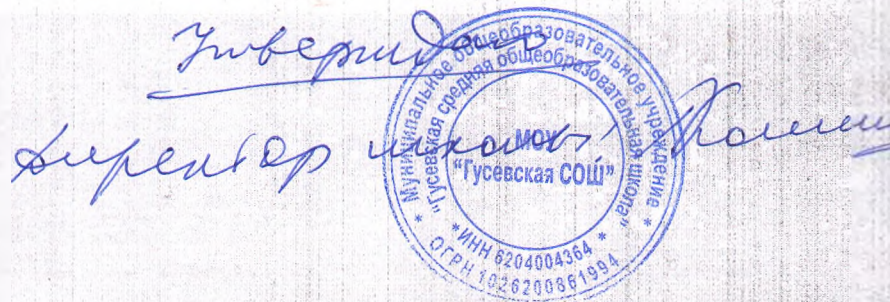 Утверждаю
Директор школы
Муниципальное общеобразовательное учреждение
"Гусевская средняя общеобразовательная школа"
МОУ
"Гусевская СОШ"
*ИНН 6204004364 *
* ОГРН 1026200861994 *